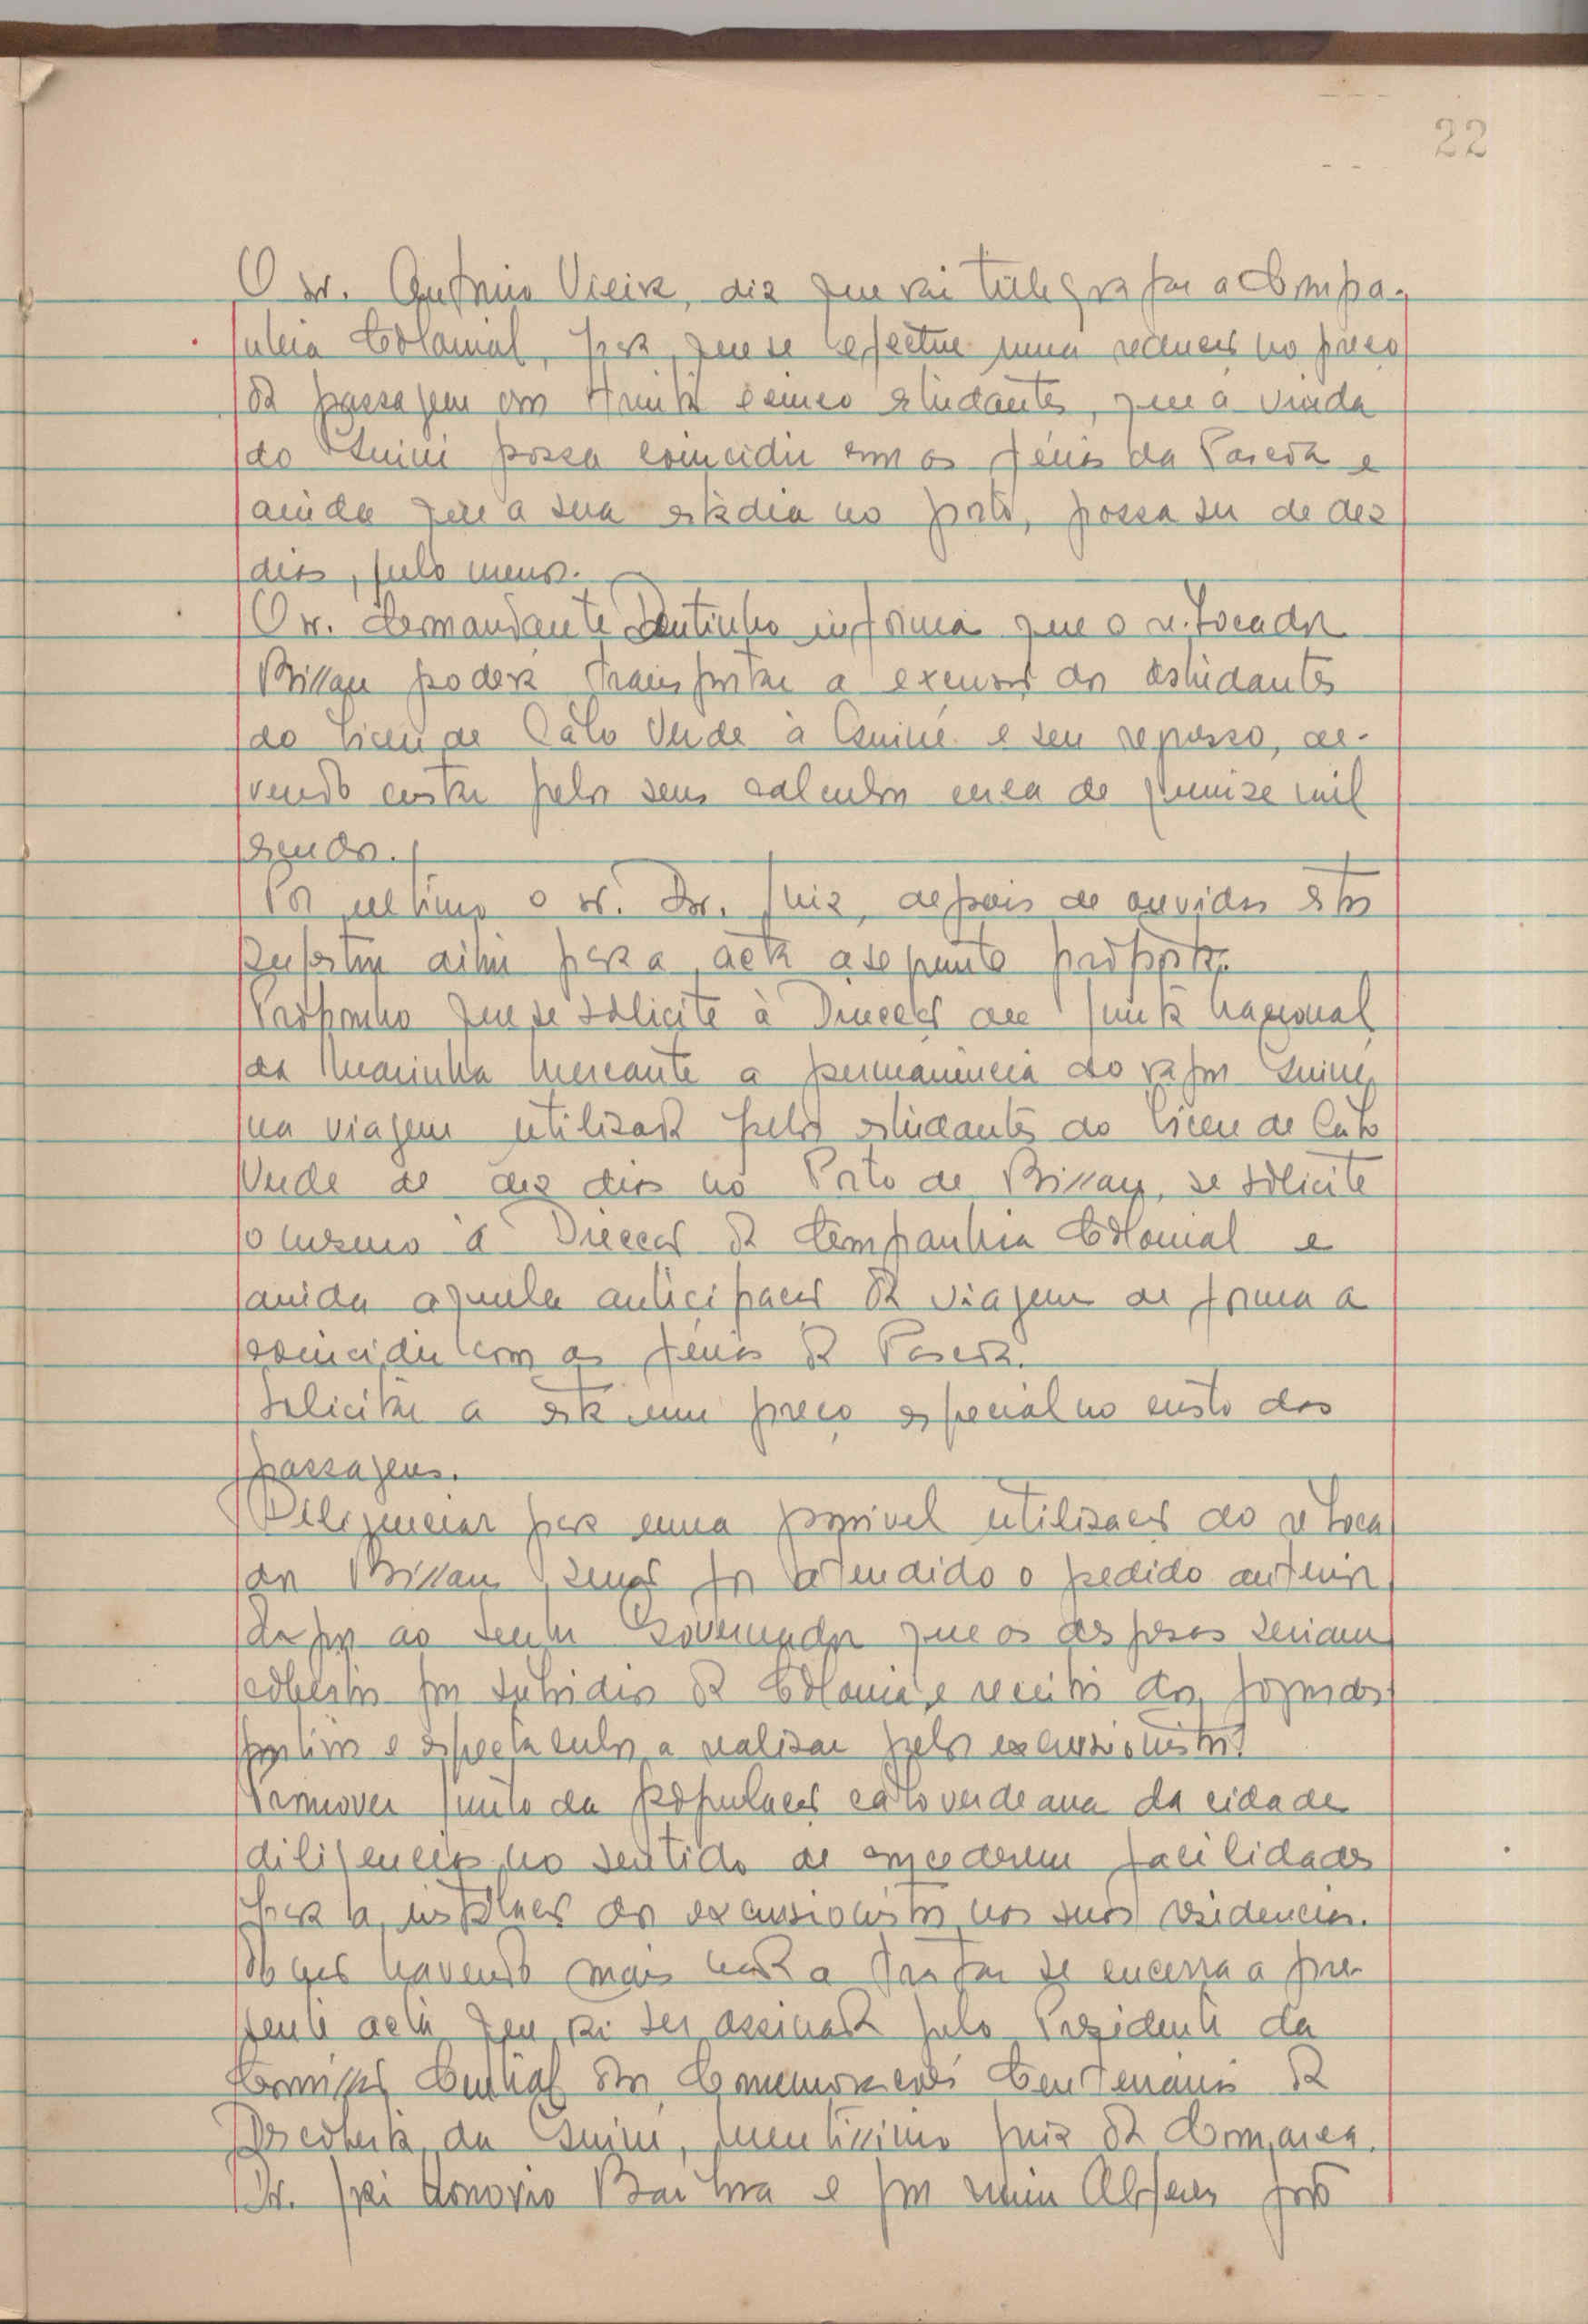 22
O sr. António Vieira, diz que vai telegrafar a Compa-
nhia Colonial, para que se efectue uma redução no preço
da passagem dos trinta e cinco estudantes, que a vinda
do Guiné possa coincidir com as férias da Pascoa e
ainda que a sua estadia no porto, possa ser de dez
dias, pelo menos.
O sr. Comandante informa que o rebocador
Bissau poderá transportar a excursão dos estudantes
do Liceu de Cabo Verde à Guiné e seu regresso, de-
vendo custar pelos seus calculos cerca de quinze mil
escudos.
Por ultimo o sr. Dr. Juiz, depois de ouvidas estas
sugestões para a acta a seguinte proposta.
Proponho que se solicite à Direcção da Junta Nacional
da Marinha Mercante a permanencia do vapor Guiné,
na viagem utilizada pelos estudantes do Liceu de Cabo
Verde de dez dias no Porto de Bissau, se solicite
o mesmo á Direcção da Companhia Colonial e
ainda aquela anticipação da viagem de forma a
coincidir com as férias da Pascoa.
Solicitar a esta um preço especial no custo das
passagens.
Deligenciar para uma possivel utilisação do reboca
dor Bissau, se não for atendido o pedido anterior
ao Senhor Governador que as despesas seriam
cobertas por subsidio da Colonia e receitas dos jogos des
portivos e espectaculos a realisar pelos excursionistas.
Promover junto da população caboverdeana da cidade
diligencias no sentido de concederem facilidades
para a instalação dos excursionistas nas suas residencias.
E não havendo mais nada a tratar se encerra a pre-
sente acta que vai ser assinada pelo Presidente da
Comissão Central das Comemorações Centenárias da
Descoberta da Guiné, meritissimo Juiz da Comarca.
Dr. José Honorio Barbosa e por mim